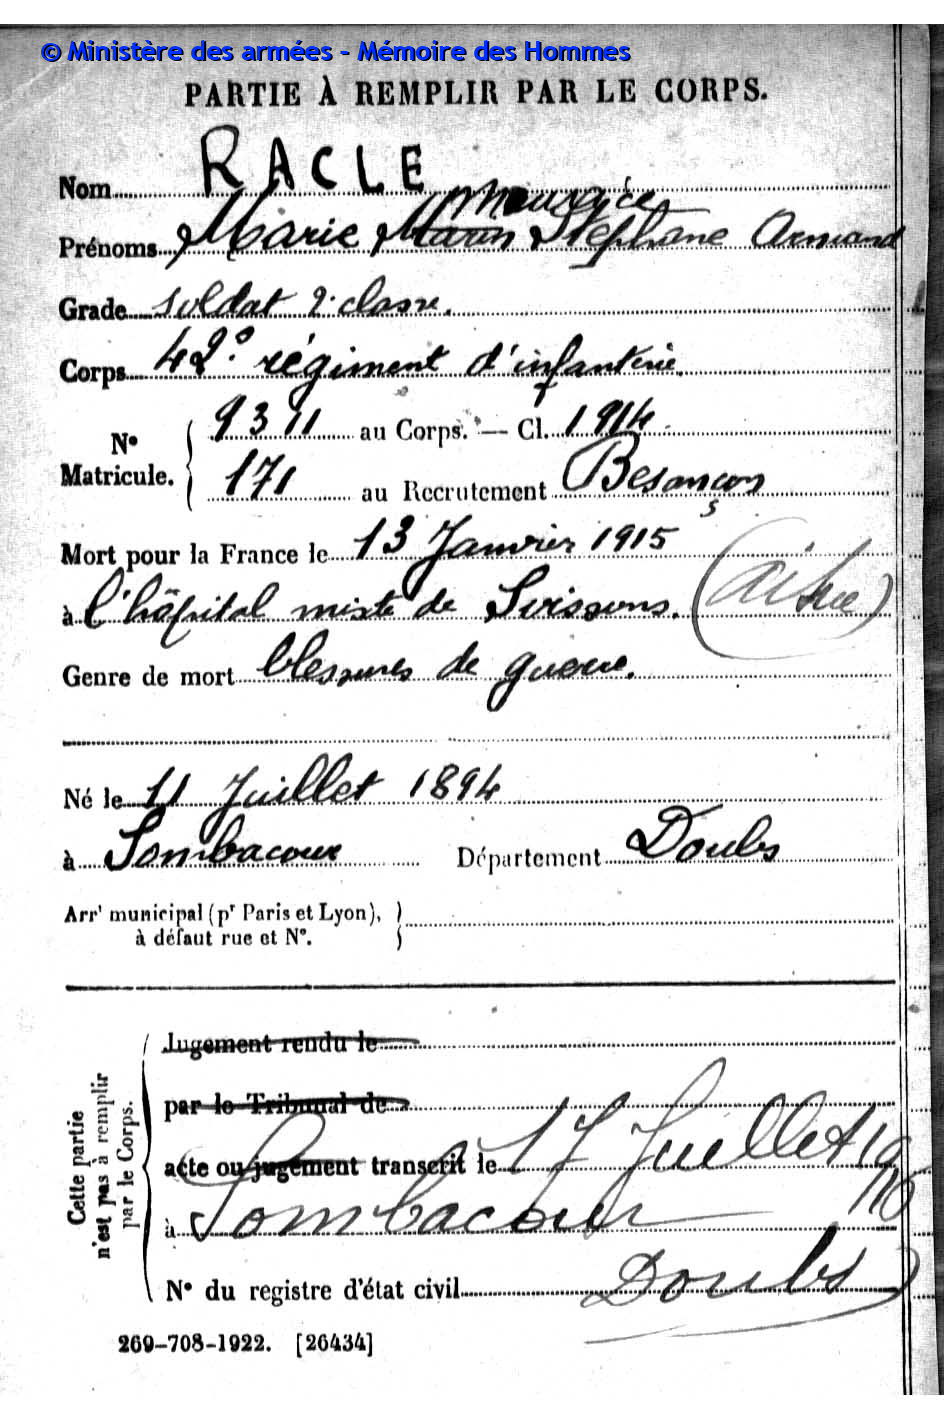 © Ministère des armées - Mémoire des Hommes
PARTIE À REMPLIR PAR LE CORPS.
Nom RACLE
Maurice
Prénoms Marie Stéphane Armand
Grade soldat 2e classe.
Corps 42e régiment d'infanterie.
N° Matricule. { 9311 au Corps. — Cl. 1914
171 au Recrutement Besançon
Mort pour la France le 13 Janvier 1915
à l'hôpital mixte de Soissons. (Aisne)
Genre de mort blessures de guerre.
Né le 11 Juillet 1894
à Sombacour Département Doubs
Arrt municipal (pr Paris et Lyon),
à défaut rue et N°.
Cette partie n'est pas à remplir par le Corps.
Jugement rendu le
par le Tribunal de
acte ou jugement transcrit le 17 Juillet 1916
à Sombacour
Doubs
N° du registre d'état civil
269-708-1922. [26434]